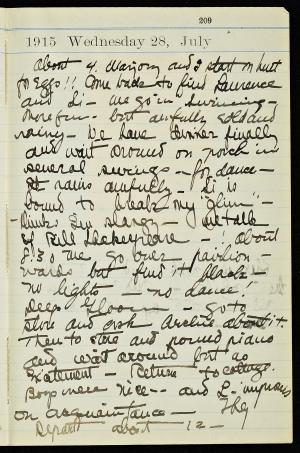 209
1915 Wednesday 28, July
about 4. Marjory and I start on hunt
for eggs!! Come back to find Laurence
and Li - we go in swimming -
more fun - but awfully cold and
rainy - We have dinner finally
and wait around on porch in
several swings - for dance -
It rains awfully - Li is
bound to break my "Glim" -
- thinks I'm slangy - we talk
of Bill Shakespeare - ! about
8:30 we go over pavilion -
wards but find it black -
no lights - no dance!
Deep gloom - go to
store and ask Archie about it.
Then to store and pound piano
and wait around but no
excitement - Return to cottage.
Boys were nice - and L. improves
on acquaintance - They
Depart about 12 -